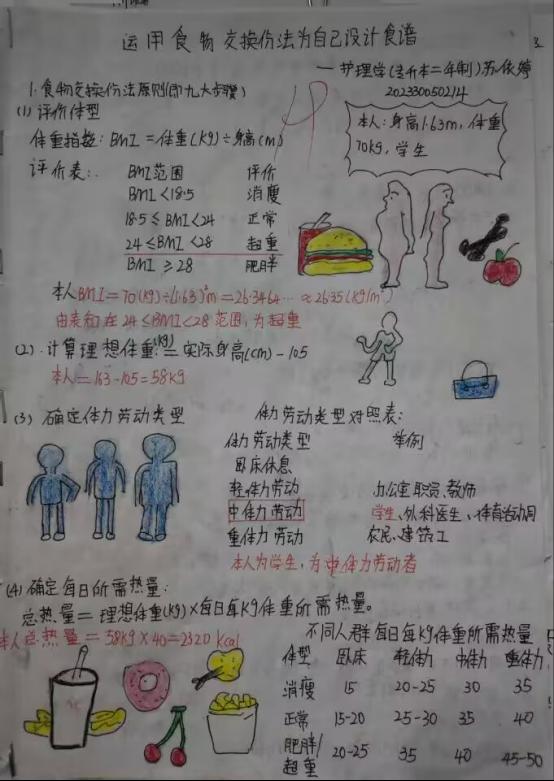 运用食物交换份法为自己设计食谱
—护理学(专升本二年制)苏依婷
202330050214
1.食物交换份法原则(即九大步骤)
(1) 评价体型
体重指数: BMI = 体重(Kg) ÷ 身高(m)
本人:身高1.63m, 体重
70kg, 学生
评价表:
BMI范围 评价
BMI<18.5 消瘦
18.5≤BMI<24 正常
24≤BMI<28 超重
BMI≥28 肥胖
本人BMI=70(kg)÷(1.63)²m=26.3464…≈26.35(kg/m²)
由表知在24≤BMI<28范围,为超重
(2).计算理想体重:(kg)=实际身高(cm)-105
本人=163-105=58kg
(3) 确定体力劳动类型
体力劳动类型对照表:
体力劳动类型 举例
卧床休息
轻体力劳动 办公室职员、教师
中体力劳动 学生、外科医生、体育活动
重体力劳动 农民、建筑工
本人为学生,为中体力劳动者
(4) 确定每日所需热量:
总热量=理想体重(kg)×每日每kg体重所需热量。
本人总热量=58kg×40=2320 kcal
不同人群每日每kg体重所需热量
体型 卧床 轻体力 中体力 重体力
消瘦 15 20-25 30 35
正常 15-20 25-30 35 40
肥胖/超重 20-25 35 40 45-50